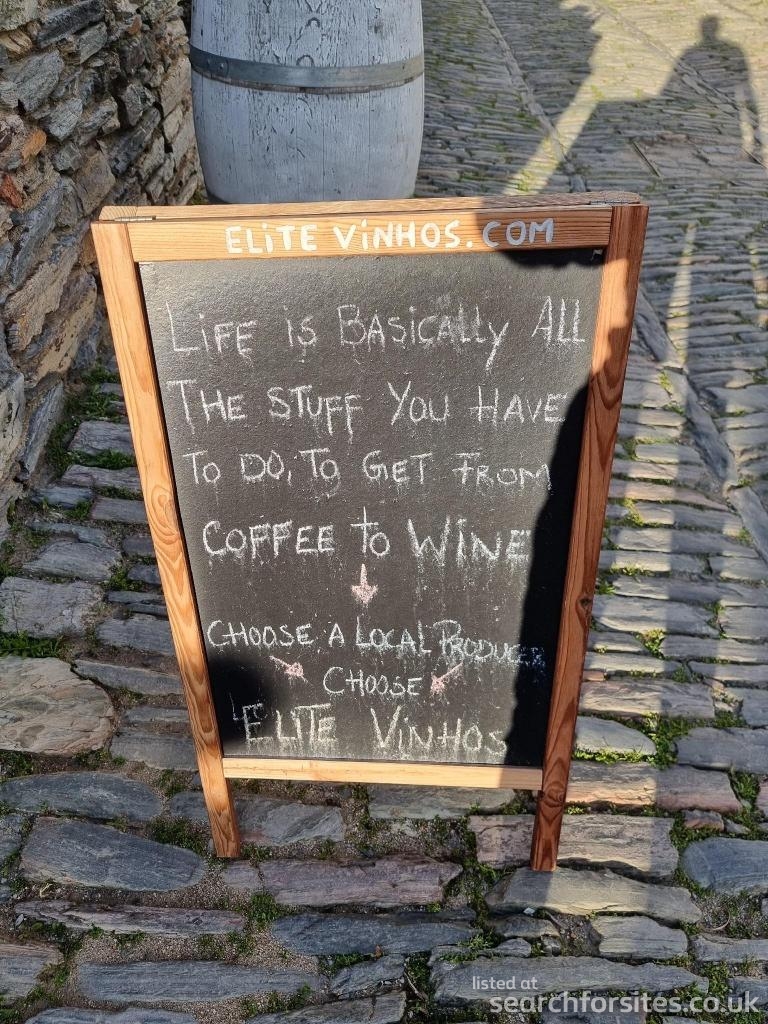 ELiTE ViNHOS.COM
LiFE is BASiCAllY All
THE STUFF YOU HAVE
TO DO, TO GET FROM
COFFEE to WiNE
CHOOSE A LOCAL PRODUCER
CHOOSE
ELITE ViNHOS
listed at
searchforsites.co.uk